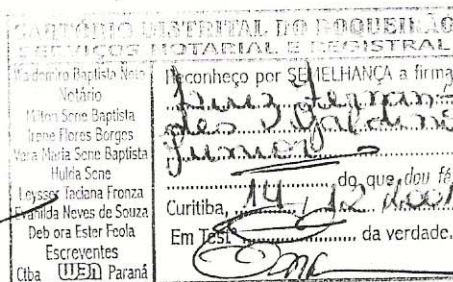 CARTÓRIO DISTRITAL DO BOQUEIRÃO
SERVIÇOS NOTARIAL E REGISTRAL
Waldemiro Baptista Neto
Notário
Milton Sene Baptista
Irene Flores Borges
Vera Maria Sene Baptista
Hulda Sene
Leysser Taciana Fronza
Evanilda Neves de Souza
Deb ora Ester Feola
Escreventes
Ctba Paraná
Reconheço por SEMELHANÇA a firma
Luiz Fernan
des
Junior
do que dou fé
Curitiba, 14 / 12 2001
Em Testº da verdade.